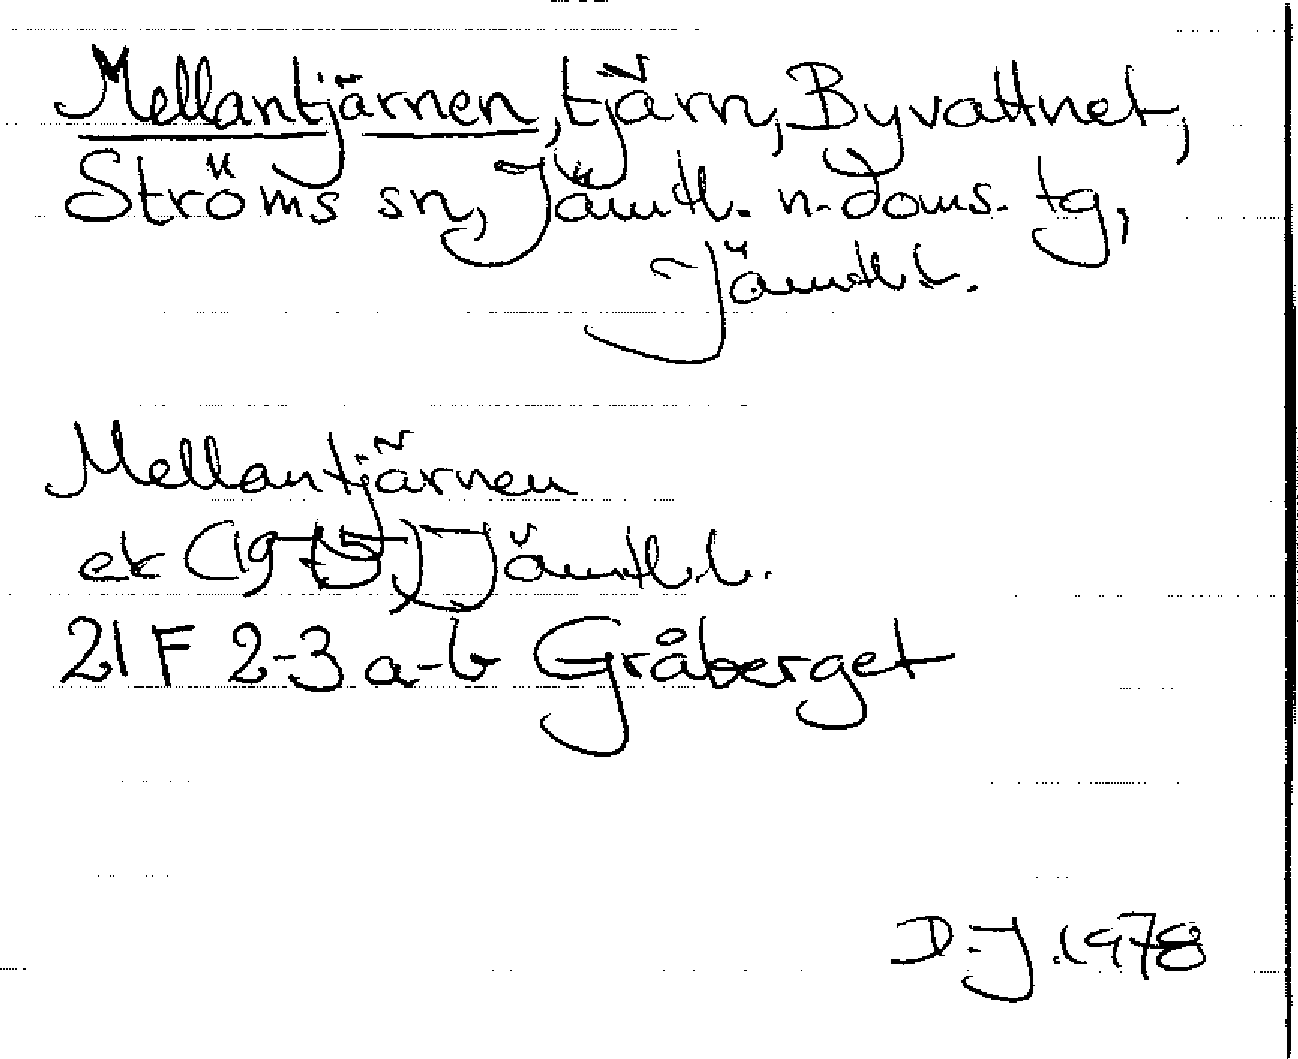 Mellantjärnen, tjärn, Byvattnet,
Ströms sn, Jämtl. n. doms. tg,
Jämtl. l.
Mellantjärnen
ek (1975) Jämtl. l.
21 F 2-3 a-b Gråberget
D:J. 1978